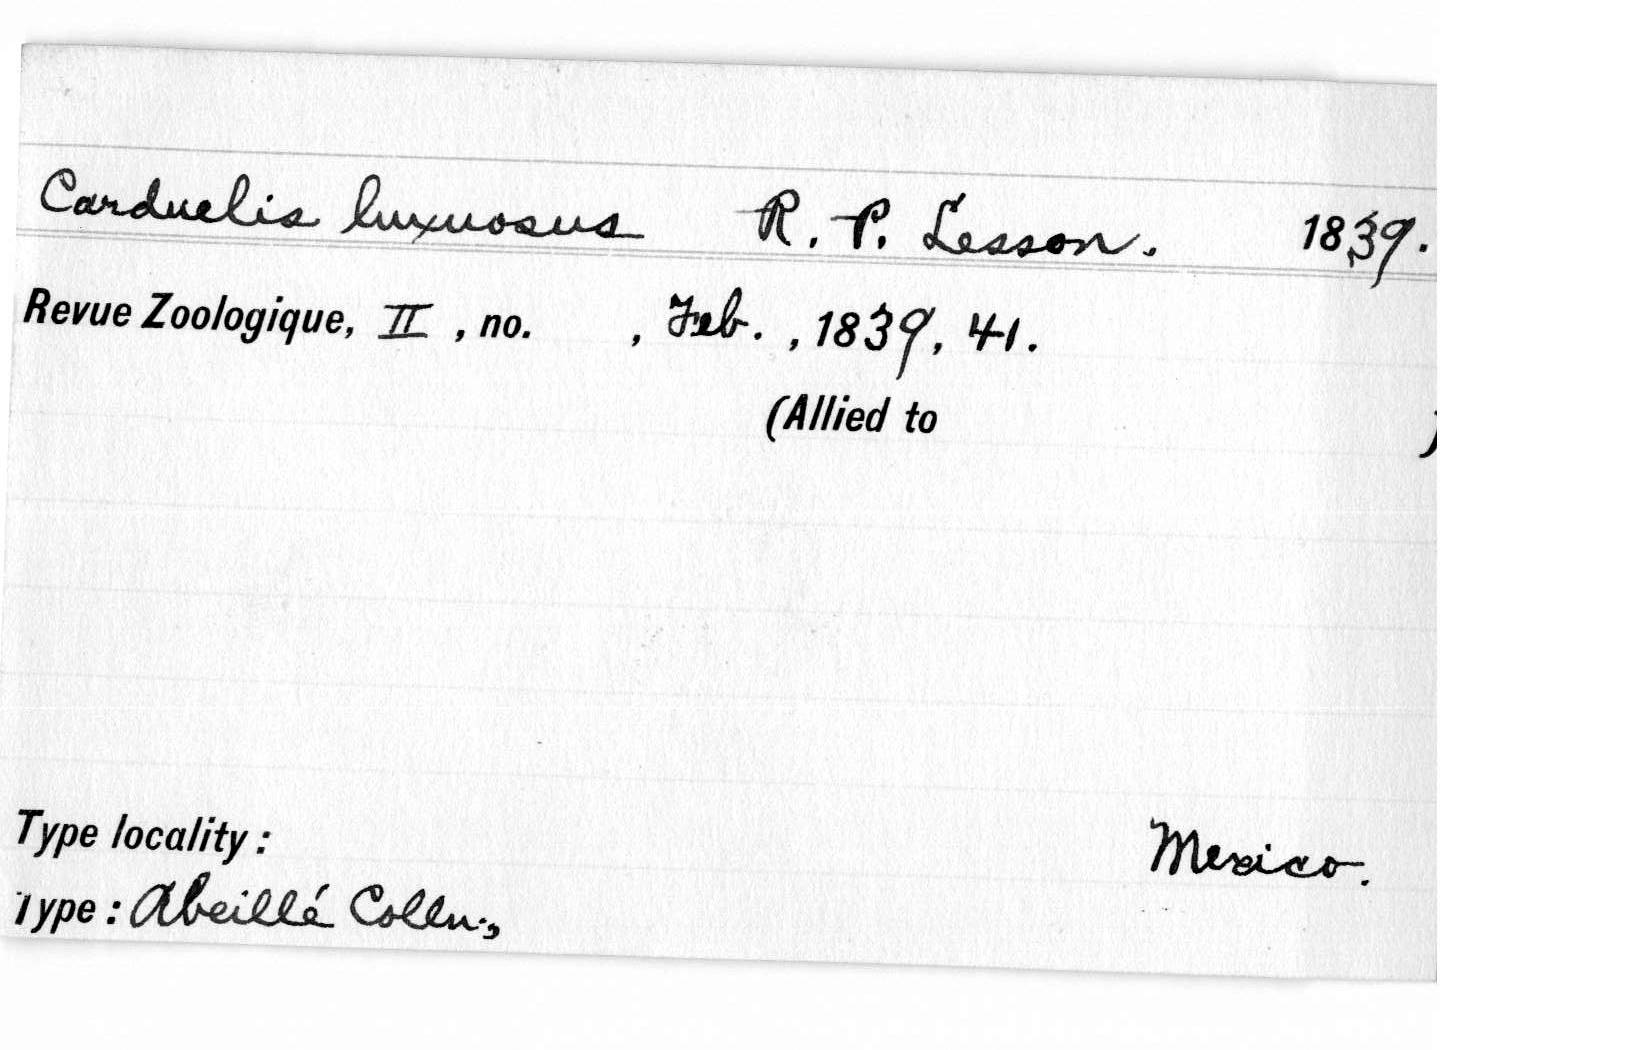 Carduelis luxuosus R. P. Lesson. 1839.
Revue Zoologique, II , no. , Feb. , 1839, 41.
(Allied to )
Type locality : Mexico.
Type : Abeillé Colln.,